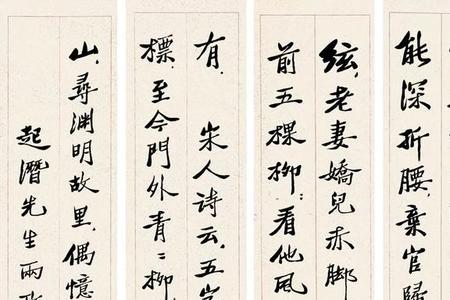 能深折腰棄官歸
絃老妻嬌兒赤脚
前五棵柳看他風
有宋人诗云五
標至今門外青々柳
山尋淵明故里偶憶
起潛先生兩